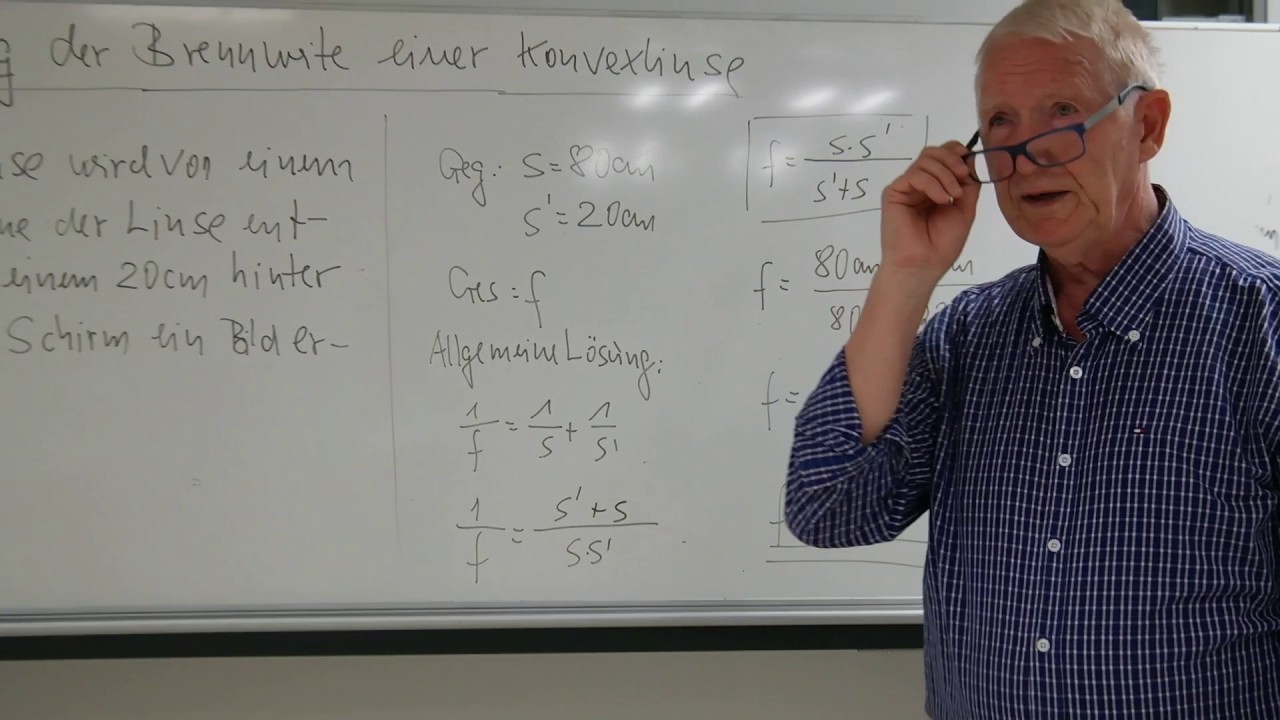 der Brennweite einer Konvexlinse
se wird von einem
ne der Linse ent-
einem 20cm hinter
Schirm ein Bild er-
Geg: s=80cm
s'=20cm
Ges: f
Allgemeine Lösung:
1/f = 1/s + 1/s'
1/f = (s'+s)/(s·s')
f = (s·s')/(s'+s)
f = 80cm
80
f =